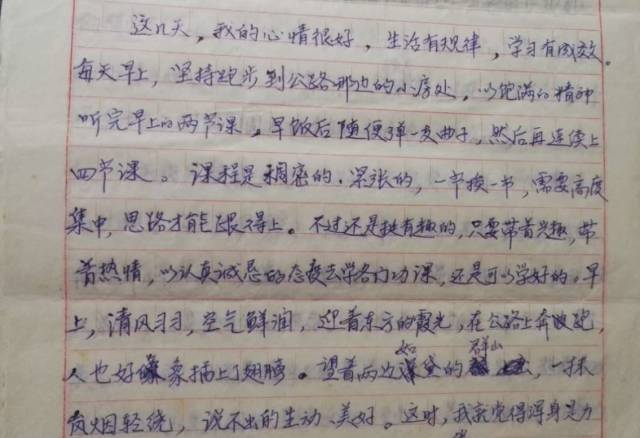 这几天，我的心情很好，生活有规律，学习有成效。
每天早上，坚持跑步到公路那边的小房处，以饱满的精神
听完早上的两节课，早饭后随便弹一支曲子，然后再连续上
四节课。课程是稠密的、紧张的，一节挨一节，需要高度
集中，思路才能跟得上。不过还是挺有趣的，只要带着兴趣，带
着热情，以认真诚恳的态度去学各门功课，还是可以学好的。早
上，清风习习，空气鲜润，迎着东方的霞光，在公路上奔放跑，
人也好象插上了翅膀。望着两边如黛的群山，一抹
烟轻绕，说不出的生动、美好。这时，我就觉得浑身是力